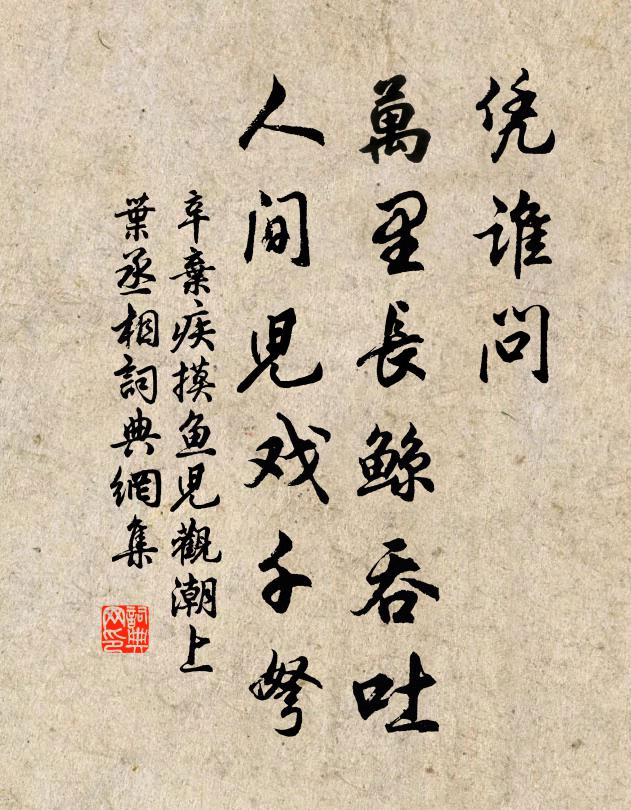 凭谁问
萬里長鲸吞吐
人间兒戏千弩
辛棄疾摸鱼兒觀潮上
葉丞相詞典網集
詞典网印